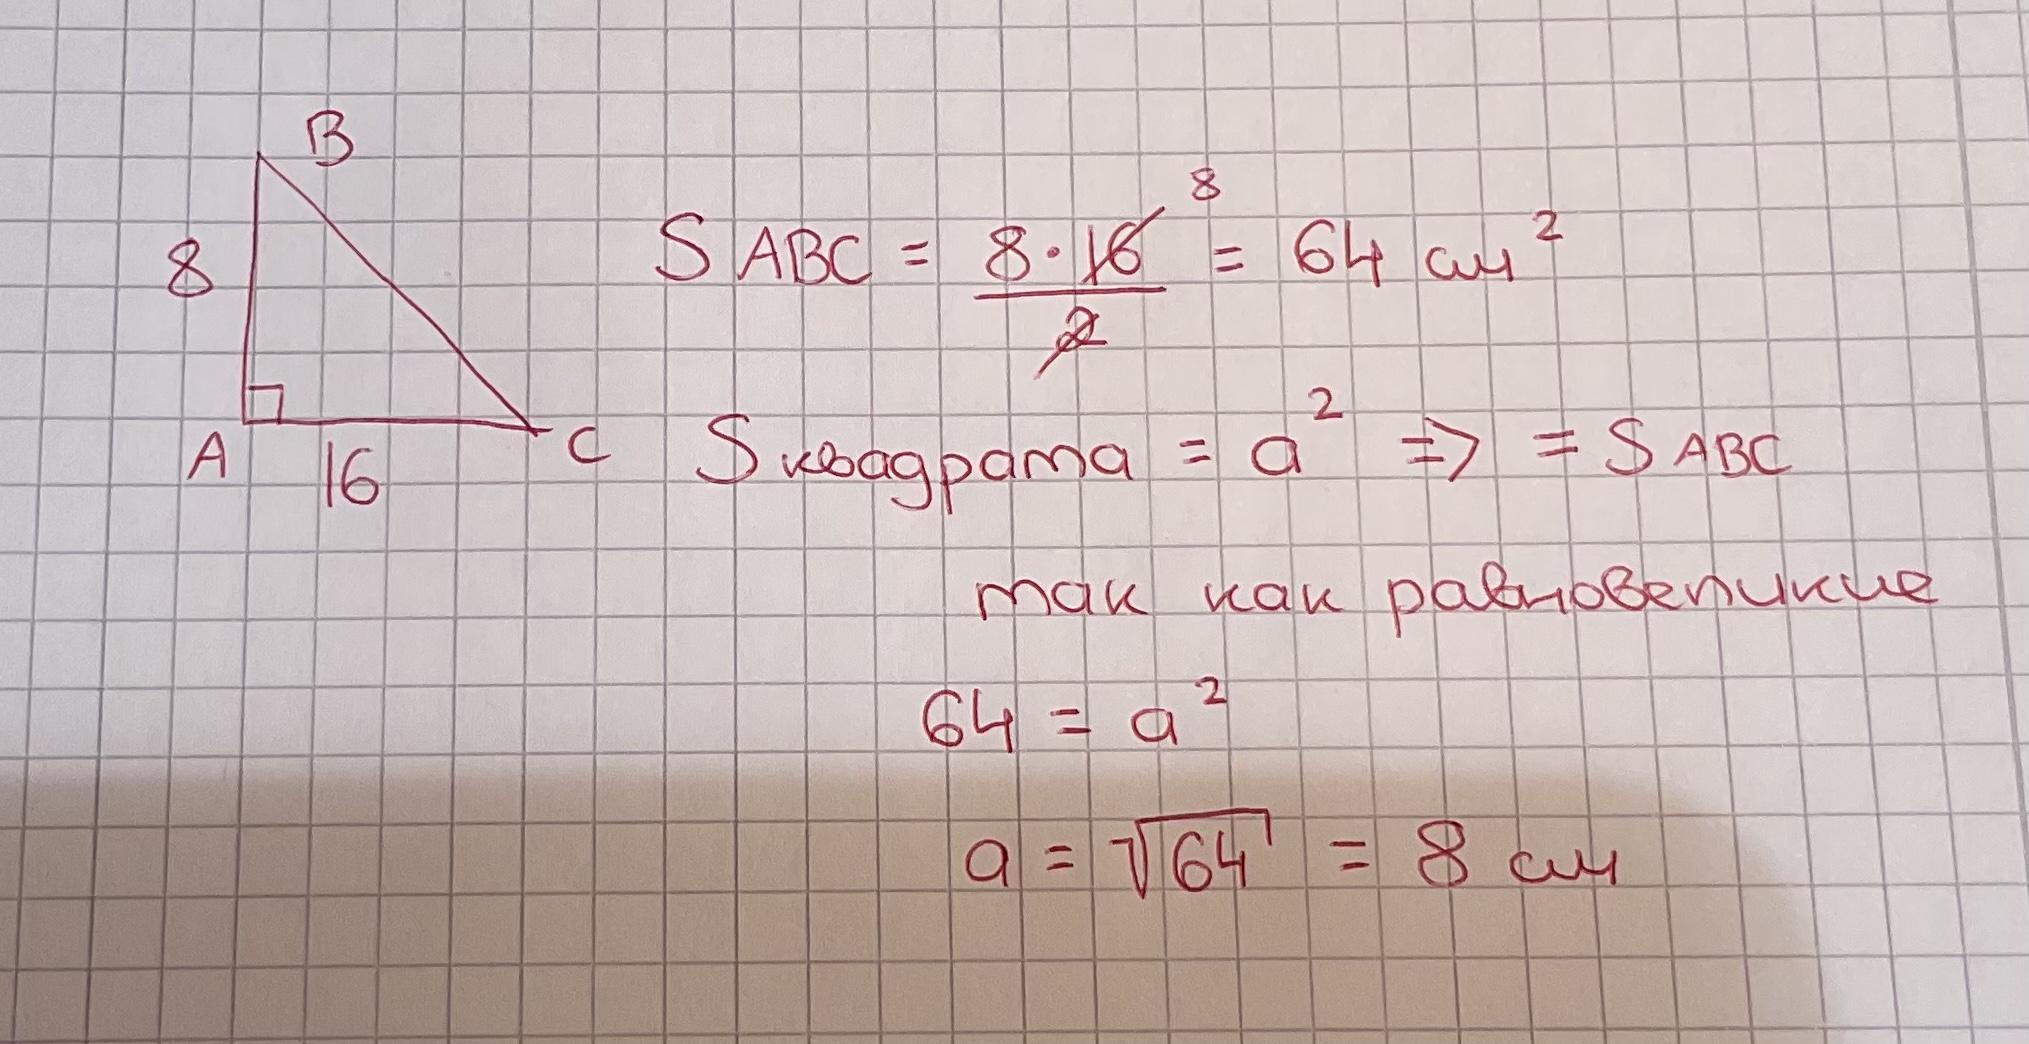 B
8
A
16
C
S ABC = 8·16/2 8 = 64 см²
S квадрата = a² => = S ABC
так как равновеликие
64 = a²
a = √64 = 8 см